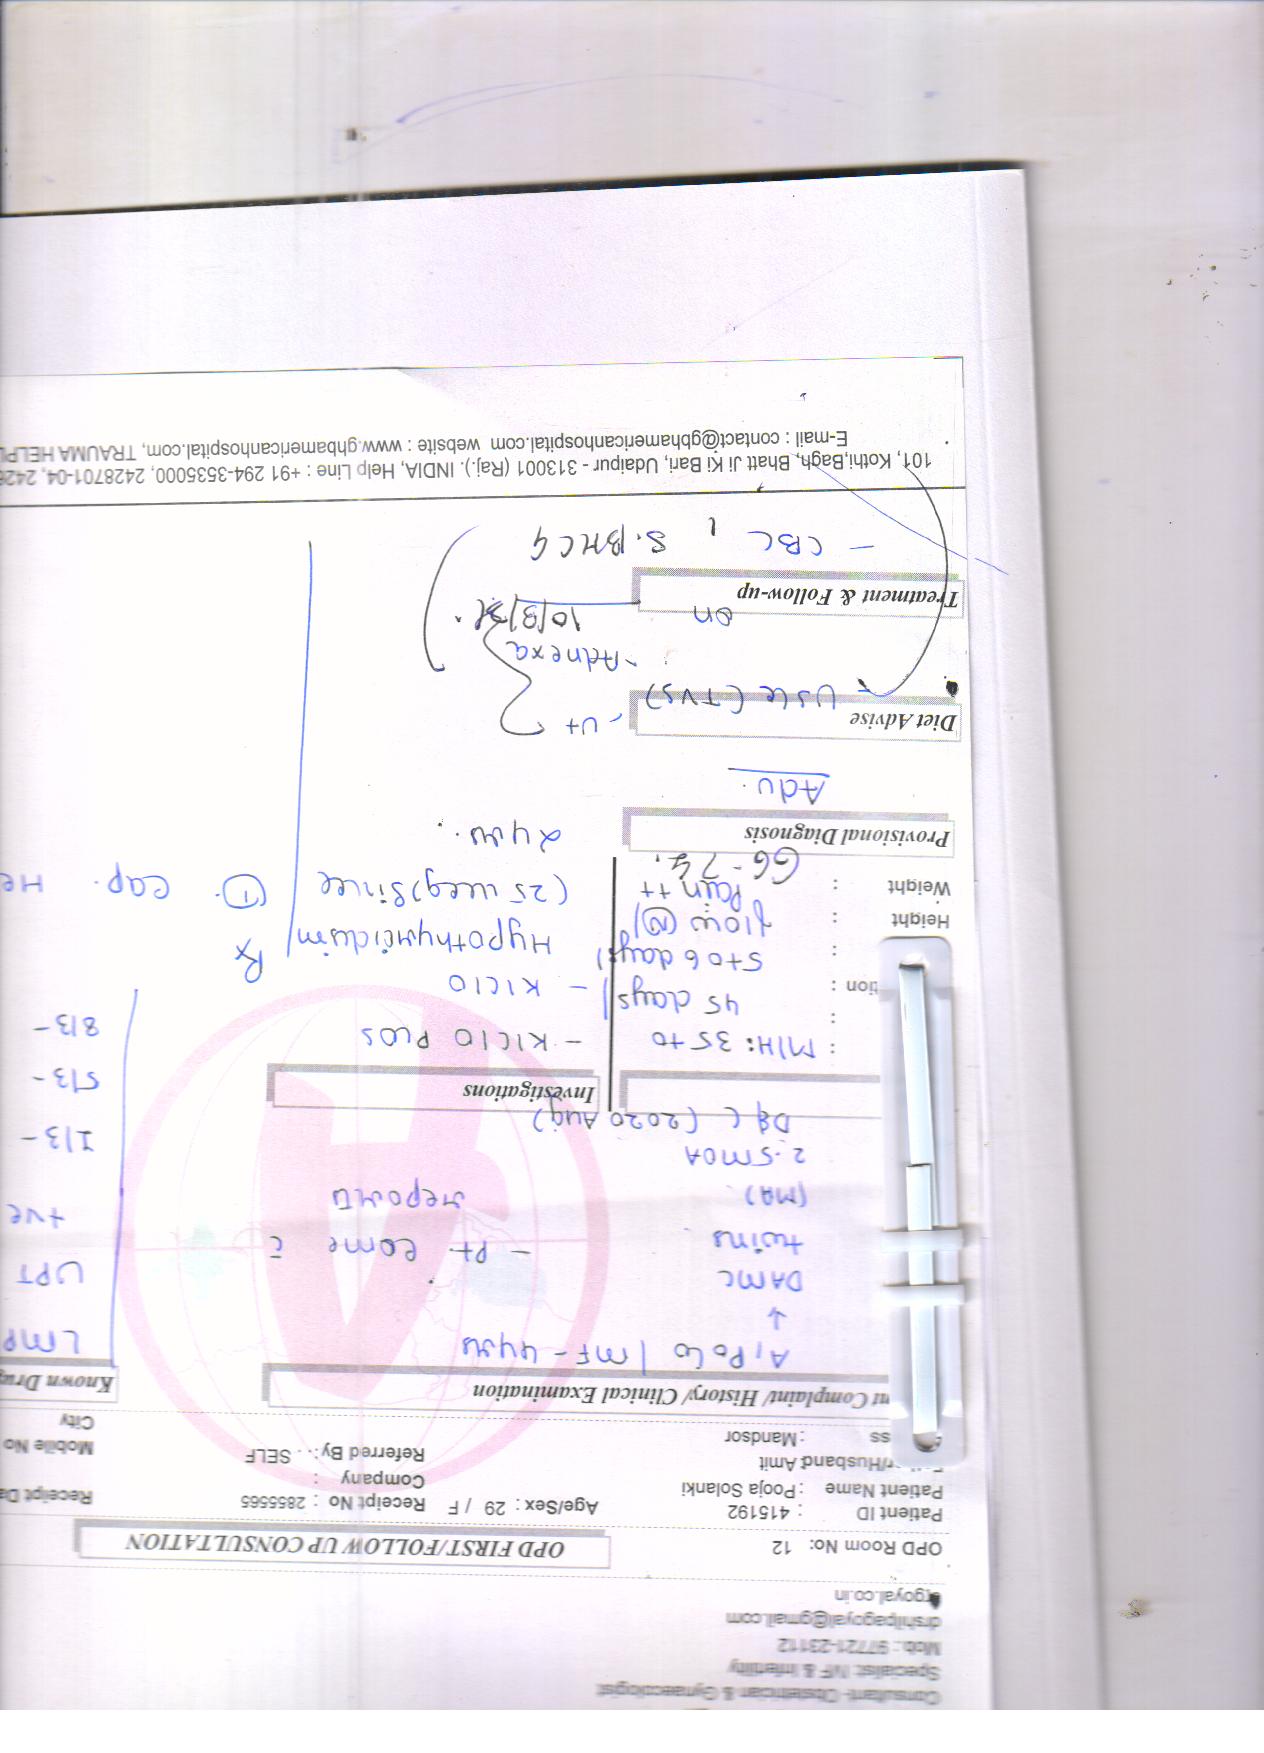 Consultant- Obstetrician & Gynaecologist
Specialist: IVF & Infertility
Mob.: 97721-23112
drshilpagoyal@gmail.com
goyal.co.in
OPD Room No: 12
OPD FIRST/FOLLOW UP CONSULTATION
Patient ID : 415192
Age/Sex : 29 / F Receipt No : 2855565 Receipt Da
Patient Name : Pooja Solanki
Company :
r/Husband: Amit
Referred By : SELF Mobile No
ss : Mandsor
City
nt Complaint/ History/ Clinical Examination
Known Drug
A1P0L0 / MF - 4yrs
LMP
↓
DAMC
UPT
twins
- Pt come c̄
+ve
(MA)
reports
2.5MOA
1/3 -
D&C (2020 Aug)
Investigations
5/3 -
: M/H: 35 to
- K/C/O PCOS
8/3 -
45 days
- K/C/O
tion :
5 to 6 days
Hypothyroidism
Rx
flow (N)
Height :
Pain ++
(25 mcg) since
① Cap. He
Weight :
66.74.
2yrs.
Provisional Diagnosis
Adv.
Diet Advise
- USG (TVS)
- Ut
- Adnexa
on
10/3/21.
Treatment & Follow-up
- CBC, S.BHCG
101, Kothi,Bagh, Bhatt Ji Ki Bari, Udaipur - 313001 (Raj.). INDIA, Help Line : +91 294-3535000, 2428701-04, 2426
E-mail : contact@gbhamericanhospital.com website : www.gbhamericanhospital.com, TRAUMA HELPL